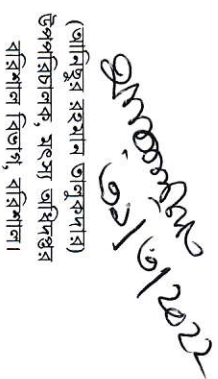 ৩১/৩/2022
(আনিছুর রহমান তালুকদার)
উপপরিচালক, মৎস্য অধিদপ্তর
বরিশাল বিভাগ, বরিশাল।